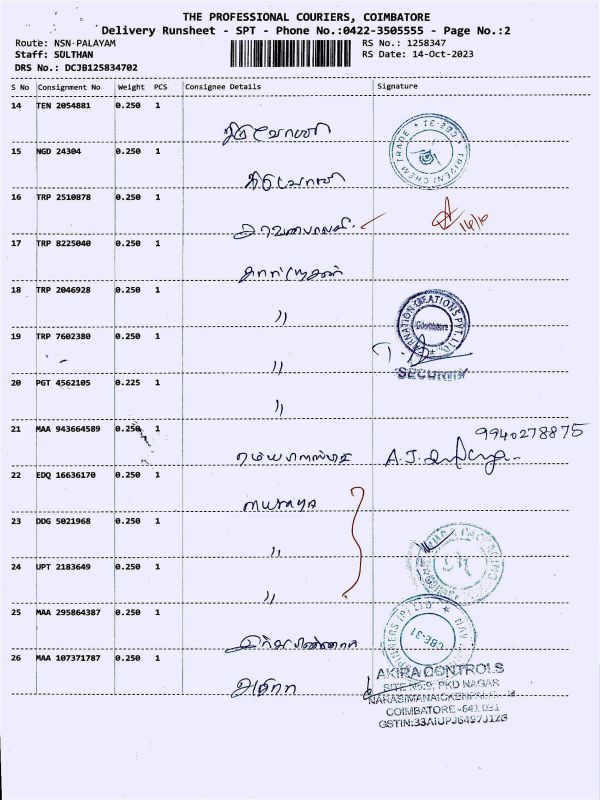 THE PROFESSIONAL COURIERS, COIMBATORE
Delivery Runsheet - SPT - Phone No.:0422-3505555 - Page No.:2
Route: NSN-PALAYAM
RS No.: 1258347
Staff: SULTHAN
RS Date: 14-Oct-2023
DRS No.: DCJB125834702
S No Consignment No Weight PCS Consignee Details Signature
14 TEN 2054881 0.250 1
திருவேணி
TRIVENI CHEM TRADE * CBE-31 *
15 NGD 24304 0.250 1
திருவேணி
16 TRP 2510878 0.250 1
17 TRP 8225040 0.250 1
18 TRP 2046928 0.250 1
"
19 TRP 7602380 0.250 1
"
SECURITY
20 PGT 4562105 0.225 1
"
21 MAA 943664589 0.250 1
9940278875
A.J.
22 EDQ 16636170 0.250 1
23 DDG 5021968 0.250 1
"
24 UPT 2183649 0.250 1
"
25 MAA 295864387 0.250 1
CBE-31
26 MAA 107371787 0.250 1
அகிரா
AKIRA CONTROLS
SITE No.9, PKD NAGAR
NARASIMANAICKENPALAYAM
COIMBATORE - 641 031
GSTIN:33AIUPJ6497J1ZG